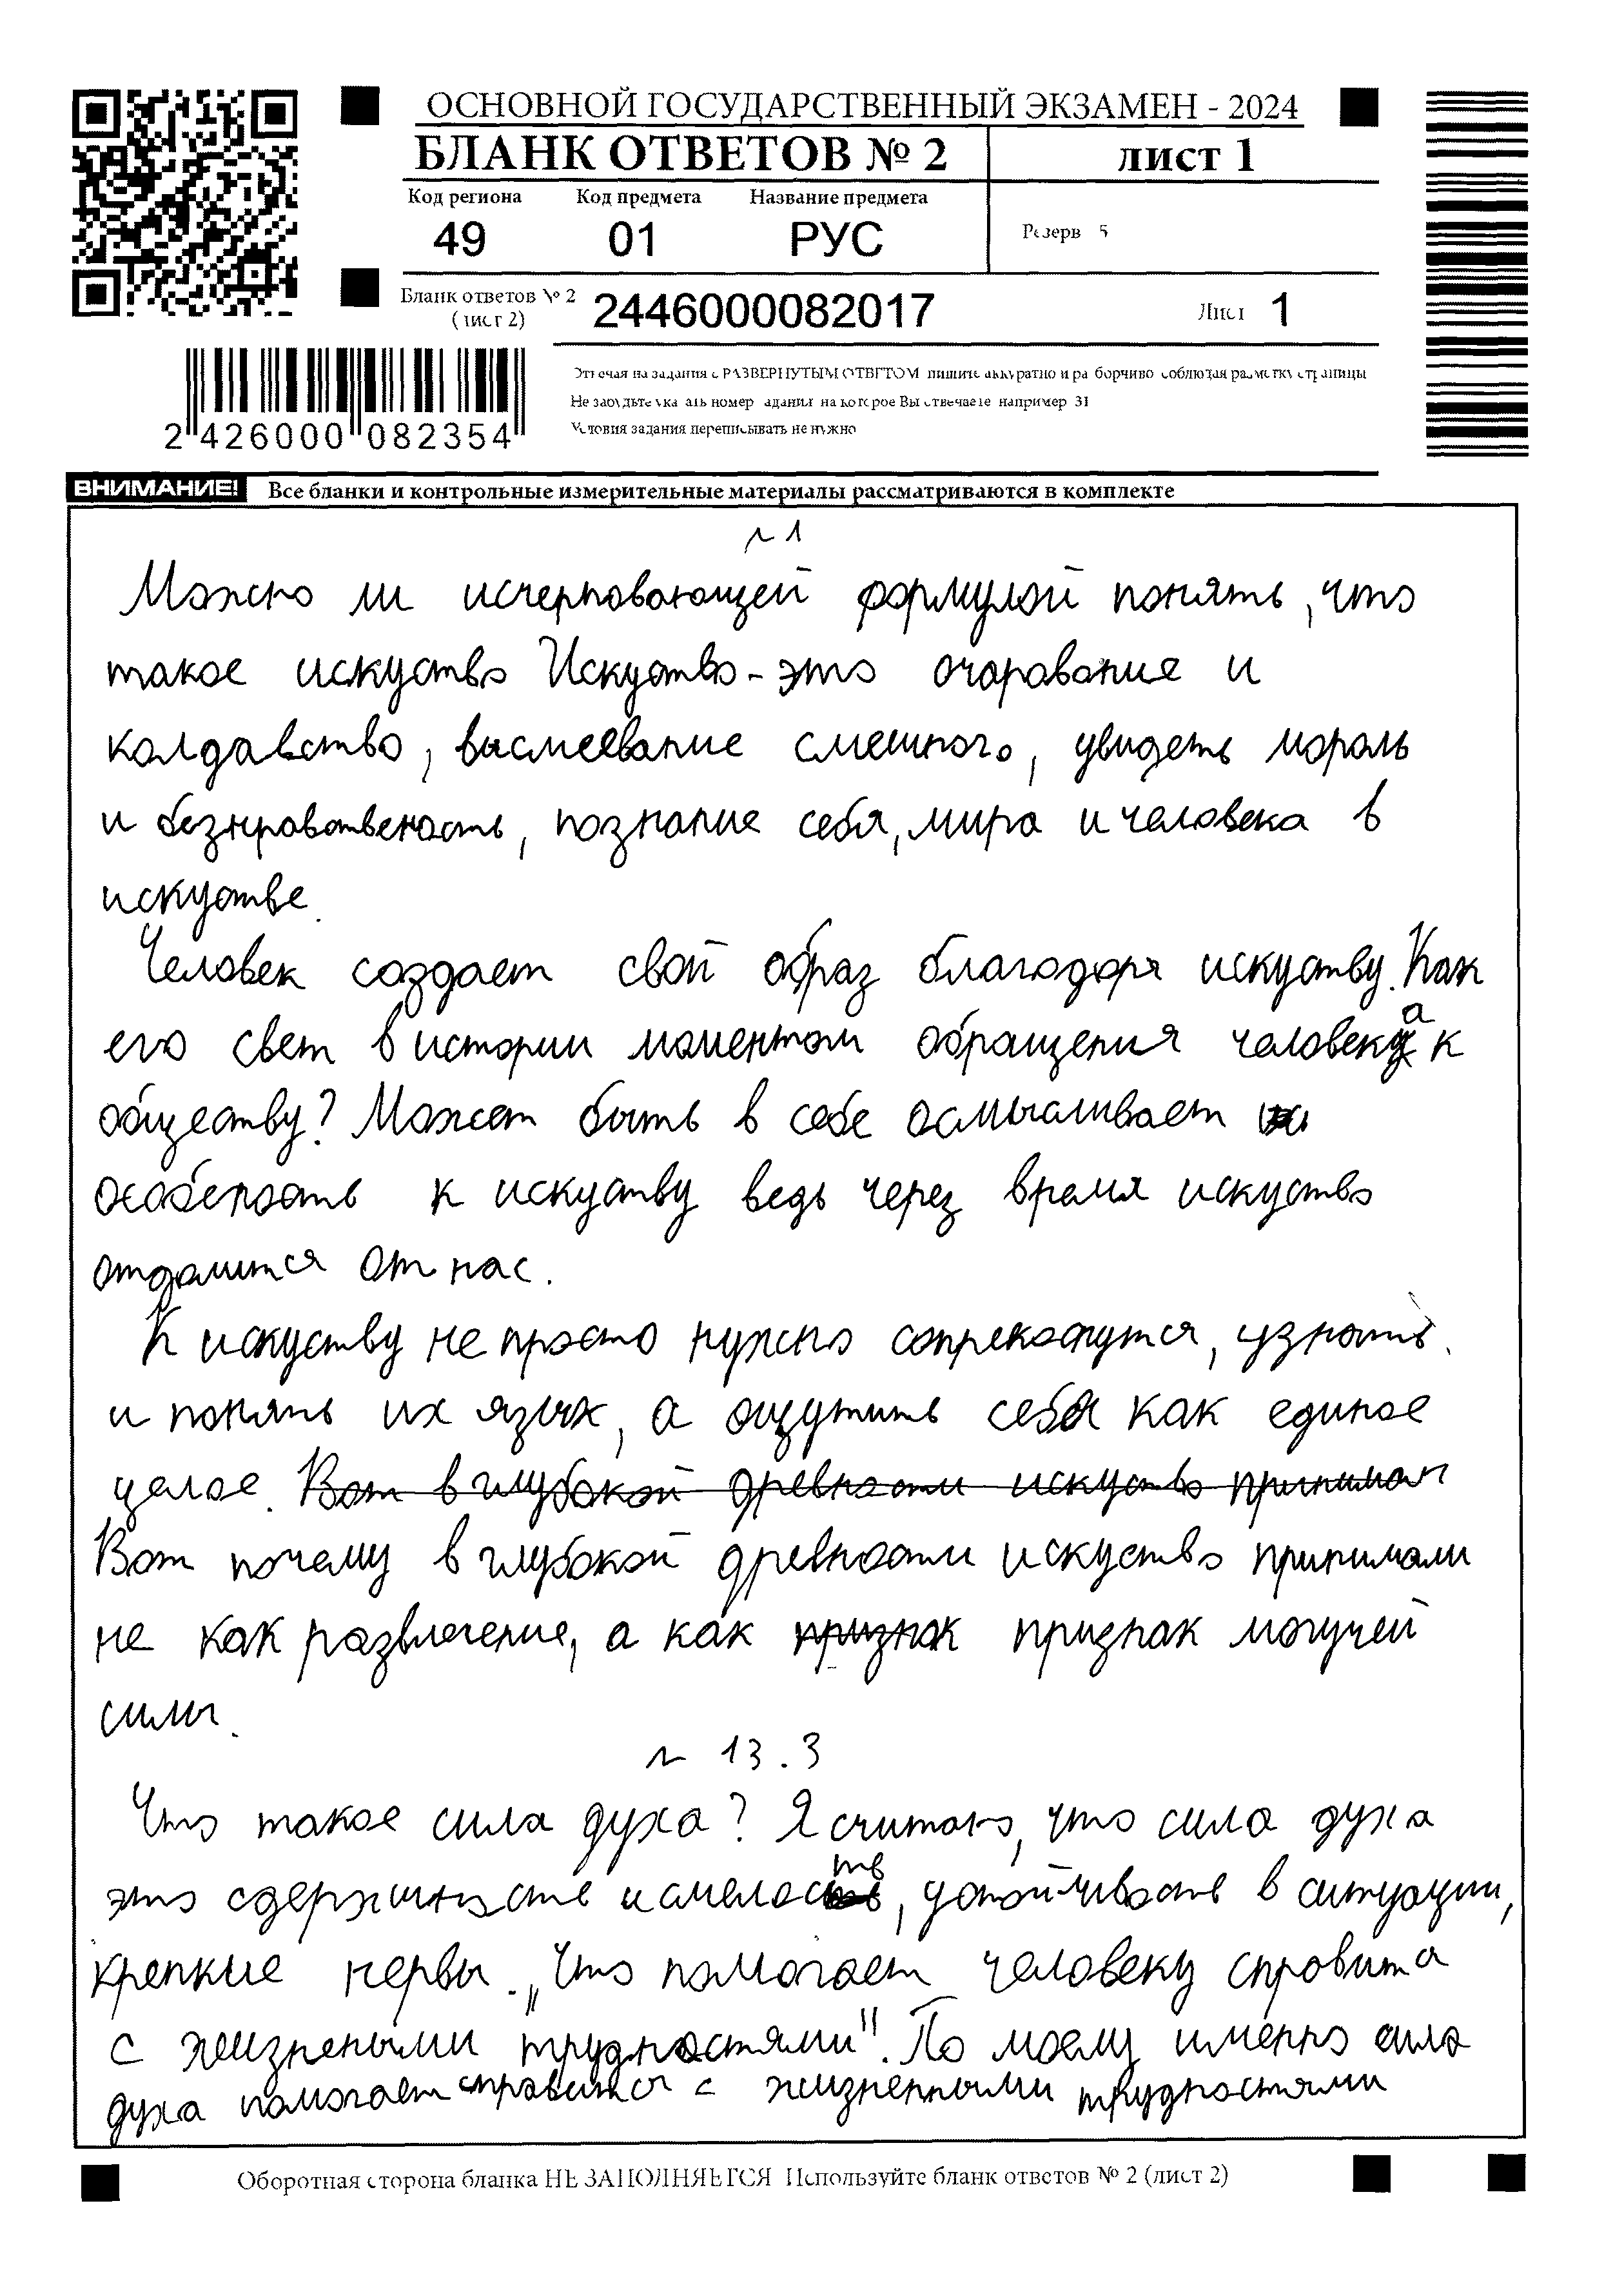 ОСНОВНОЙ ГОСУДАРСТВЕННЫЙ ЭКЗАМЕН - 2024
БЛАНК ОТВЕТОВ № 2
лист 1
Код региона Код предмета Название предмета
49 01 РУС
Резерв 5
Бланк ответов № 2
(лист 2)
2446000082017
Лист 1
2 426000 082354
Отвечая на задания с РАЗВЕРНУТЫМ ОТВЕТОМ пишите аккуратно и разборчиво соблюдая разметку страницы
Не забудьте указать номер задания на которое Вы отвечаете например 31
Условия задания переписывать не нужно
ВНИМАНИЕ! Все бланки и контрольные измерительные материалы рассматриваются в комплекте
№ 1
Можно ли исчерповающей формулой понять, что
такое искуство Искуство - это очарование и
колдавство, высмеевание смешного, увидеть мораль
и безнравственость, познание себя, мира и человека в
искустве.
Человек создает свой образ благодоря искуству. Как
его свет в истории моментом обращения человека к
обществу? Может быть в себе осмысливает
особеность к искуству ведь через время искуство
отдалится от нас.
К искуству не просто нужно сопрекоснутся, узнать.
и понять их язык, а ощутить себя как единое
целое. Вот в глубокой древности искуство принимал
Вот почему в глубокой древности искуство принимали
не как развлечение, а как признак признак могучей
силы.
№ 13.3
Что такое сила духа? Я считаю, что сила духа
это сдержиность и смелость, устойчивость в ситуации,
крепкие нервы. „Что помогает человеку справится
с жизнеными трудностями". По моему именно сила
духа помогает справится с жизненными трудностями
Оборотная сторона бланка НЕ ЗАПОЛНЯЕТСЯ Используйте бланк ответов № 2 (лист 2)